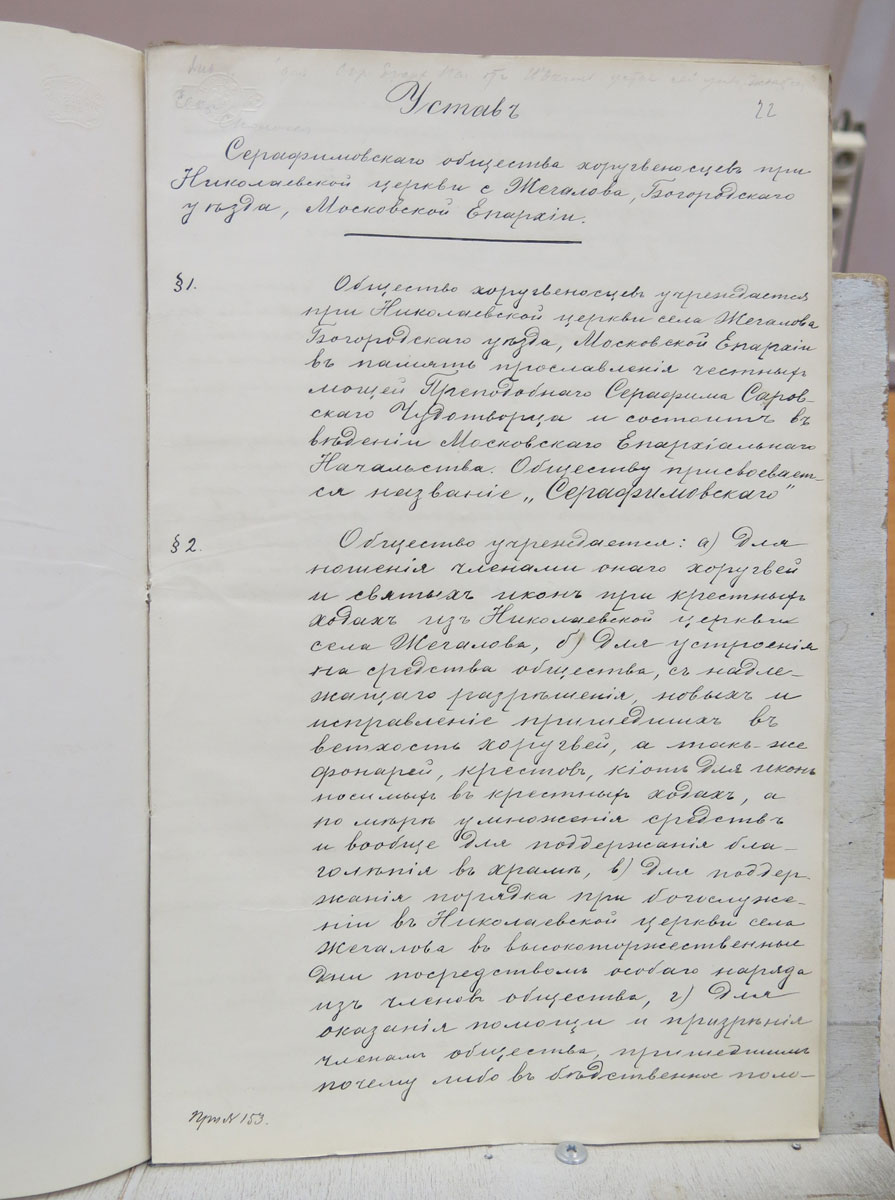 Уставъ
22
Серафимовскаго общества хоругвеносцевъ при
Николаевской церкви с Жегалова, Богородскаго
уѣзда, Московской Епархіи.
§1.
Общество хоругвеносцевъ учреждается
при Николаевской церкви села Жегалова
Богородскаго уѣзда, Московской Епархіи
въ память прославленія честныхъ
мощей Преподобнаго Серафима Саров-
скаго Чудотворца и состоитъ въ
вѣденіи Московскаго Епархіальнаго
Начальства. Обществу присвоевает-
ся названіе „Серафимовскаго"
§2.
Общество учреждается: а) Для
ношенія членами онаго хоругвей
и святыхъ иконъ при крестныхъ
ходахъ изъ Николаевской церкви
села Жегалова, б) Для устроенія
на средства общества, съ надле-
жащаго разрѣшенія, новыхъ и
исправленіе пришедшихъ въ
ветхость хоругвей, а такъ-же
фонарей, крестовъ, кіотъ для иконъ
носимыхъ въ крестныхъ ходахъ, а
по мѣрѣ умноженія средствъ
и вообще для поддержанія бла-
голѣпія въ храмѣ, в) Для поддер-
жанія порядка при богослуже-
ніи въ Николаевской церкви села
Жегалова въ высокоторжественные
дни посредствомъ особаго наряда
изъ членовъ общества, г) Для
оказанія помощи и призрѣнія
членамъ общества, пришедшимъ
почему либо въ бѣдственное поло-
№ 153.